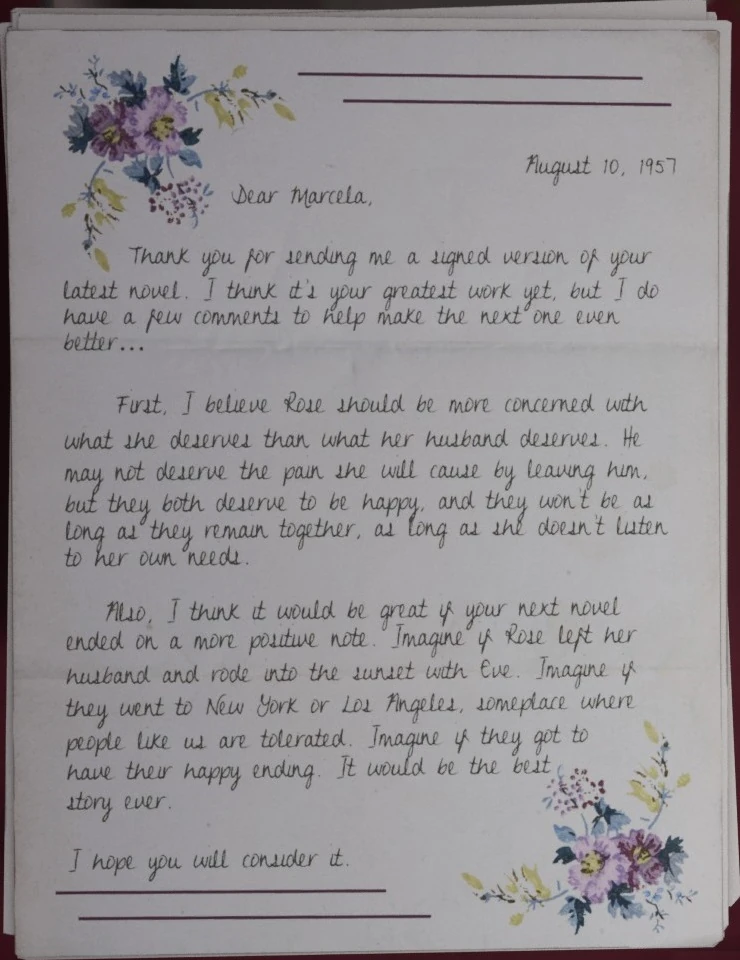 August 10, 1957
Dear Marcela,
Thank you for sending me a signed version of your
latest novel. I think it's your greatest work yet, but I do
have a few comments to help make the next one even
better...
First, I believe Rose should be more concerned with
what she deserves than what her husband deserves. He
may not deserve the pain she will cause by leaving him,
but they both deserve to be happy, and they won't be as
long as they remain together, as long as she doesn't listen
to her own needs.
Also, I think it would be great if your next novel
ended on a more positive note. Imagine if Rose left her
husband and rode into the sunset with Eve. Imagine if
they went to New York or Los Angeles, someplace where
people like us are tolerated. Imagine if they got to
have their happy ending. It would be the best
story ever.
I hope you will consider it.